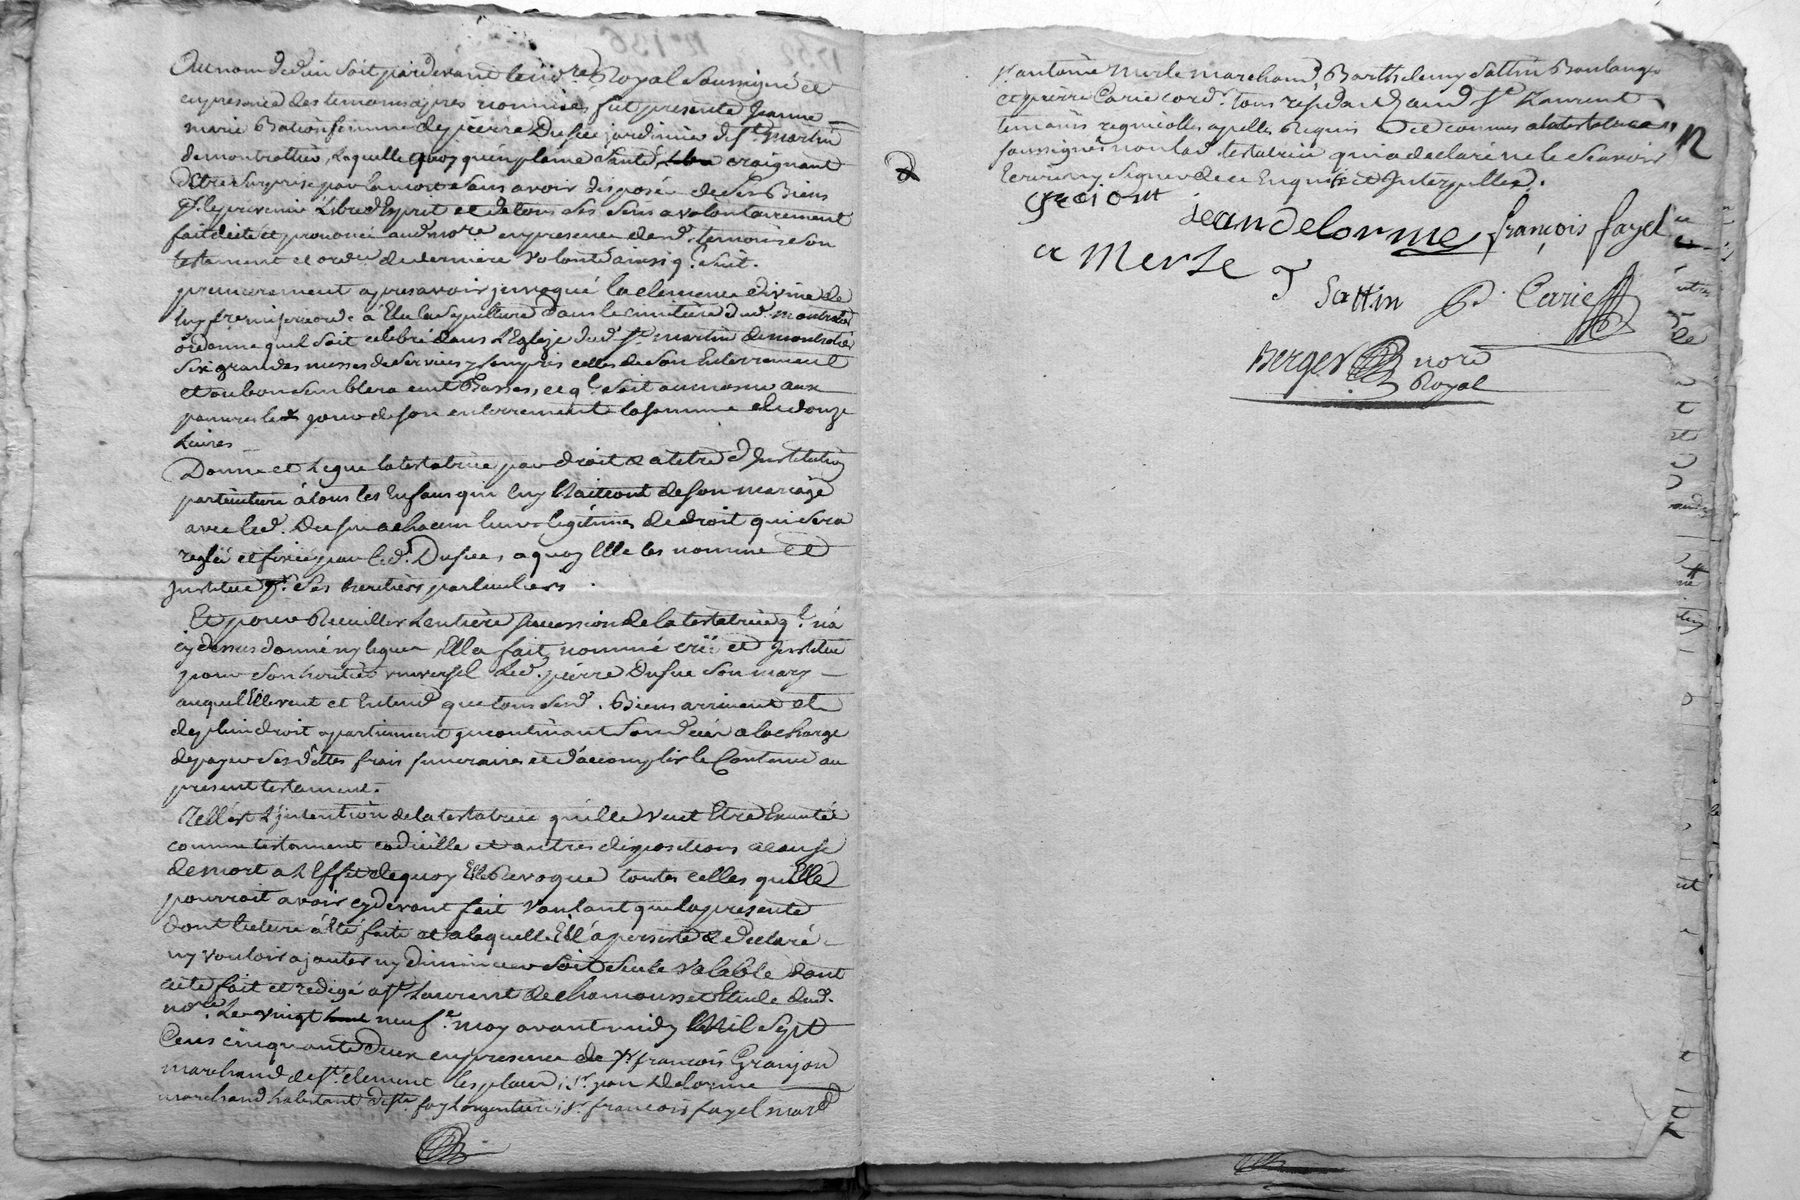 Au nom de dieu soit pardevant le no.re Royal Soussigné et
en presence des temoins apres nommés, fut presente Jeanne
marie femme de pierre Dufue jardinier de S.t martin
de montrottier, Laquelle quoy qu'en plaine Santé, craignant
d'Etre Surprise par la mort Sans avoir disposé de Ses Biens
p.r le prevenir Libre d'Esprit et de tous Ses Sens a volontairement
fait dicté et prononcé aud. no.re en presence desd. temoins Son
testament et ord.ce de derniere volonté ainsi q.l Suit.
premierement apres avoir jnvoqué la clemence divine de
luy fre misericorde à Elu Sa Sepulture dans le cimitière dud. montrottier
ordonne quil soit celebré dans l'Eglize dud. S.t martin de montrottier
Six grandes messes de Services y compris celles de Son Enterrement
et ou bon Semblera cent Basses, et q.l Soit aumosne aux
pauvres led. jour de Son enterrement la Somme de douze
Livres
Donne et Legue la testatrice par droit & a titre d'Institution
particuliere à tous les Enfans qui luy Naitront de Son mariage
avec led. Dufue a chacun leurs legitimes de droit qui Sera
reglée et fixée par led. Dufue, a quoy Elle les nomme et
jnstitue p.r Ses heritiers particuliers.
Et pour Recuillir Lentière Succession de la testatrice q.l n'a
cy dessus donné ny legué, Ella fait, nommé créé et jnstitué
pour Son heritier universel Led. pierre Dufue Son mary
auquel Elle veut et Entend que tous Sesd. Biens arrivent et
de plein droit apartiennent jncontinant Son decès a la charge
de payer Ses dettes frais funeraires et d'accomplir le Contenu au
present testament.
Tell'est L'jntention de la testatrice qu'elle veut Etre Executée
comme testament codicille et autres dispositions a cause
de mort a L'Effet de quoy Elle Revoque toutes celles qu'Elle
pourroit avoir cy devant fait voulant que la presente
dont lecture a Eté faite et a laquelle Ell'a persisté & declaré
ny vouloir ajouter ny diminuer Soit Seule Valable dont
acte fait et redigé a S.t Laurent de chamousset Etude dud.
no.re Le vingt neuf.e may avant midy Mil Sept
Cens cinquante deux en presence de S.r françois Granjon
marchand de S.t clement les places, S.r jean Delorme
marchand habitant de S.te foy Largentiere, S.r françois fayel march.d
S.r antoine Merle marchand, Barthelemy Sattin Boulanger
et pierre Carie cord.r tous residants aud. S.t Laurent
temoins regnicolles apellés Requis Et connus a la testatrice
soussignés non lad. testatrice qui a declaré ne le Scavoir
Ecrire ny Signer de ce Enquise et Interpellée.
jean delorme françois fayel
a Merle
Sattin P. Carie
Berger nore
Royal